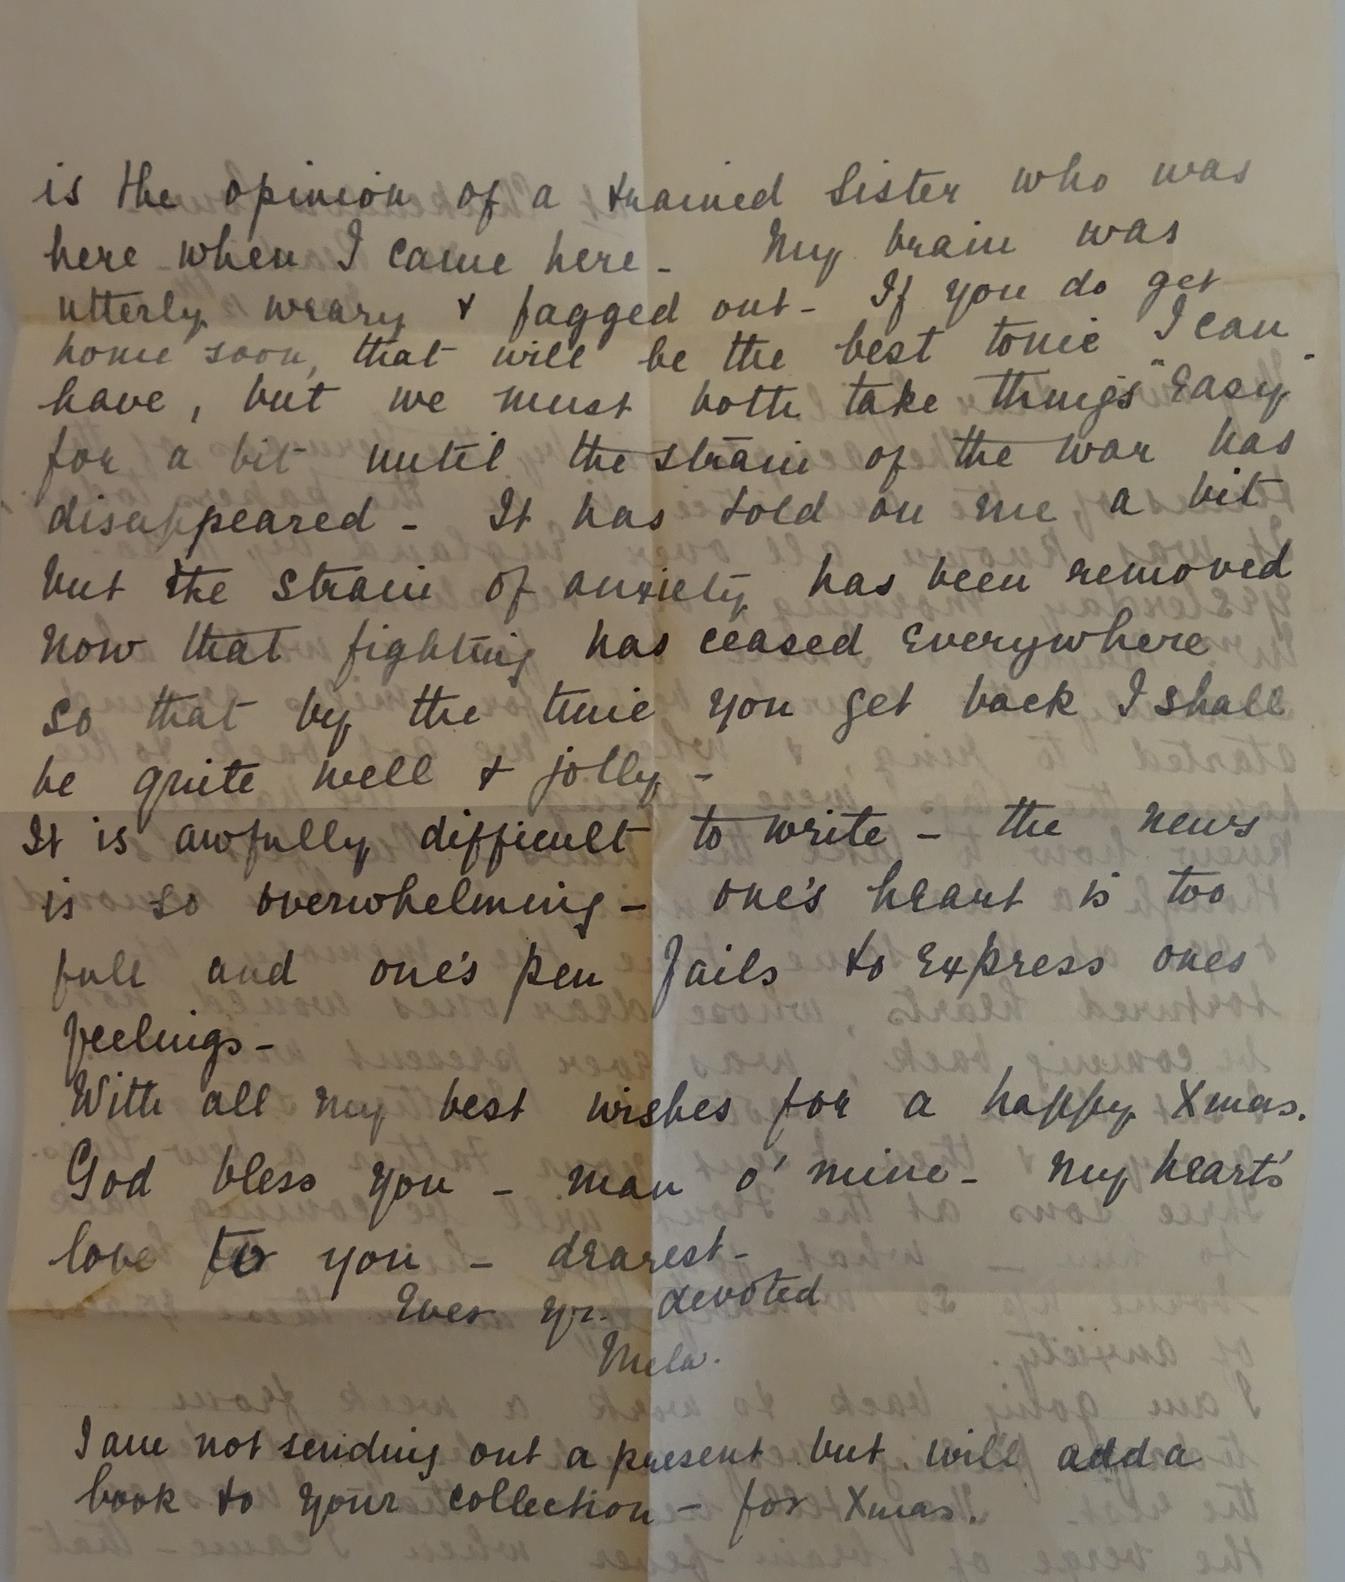 is the opinion of a trained Sister who was
here when I came here - My brain was
utterly weary & fagged out - If you do get
home soon, that will be the best tonic I can
have, but we must both take things "Easy"
for a bit until the strain of the war has
disappeared - It has told on me a bit
but the strain of anxiety has been removed
now that fighting has ceased Everywhere
so that by the time you get back I shall
be quite well & jolly -
It is awfully difficult to write - the news
is so overwhelming - one's heart is too
full and one's pen fails to Express ones
feelings -
With all my best wishes for a happy Xmas.
God bless you - man o' mine - My heart's
love to you - dearest -
Ever yr. devoted
I am not sending out a present but will add a
book to your collection - for Xmas.